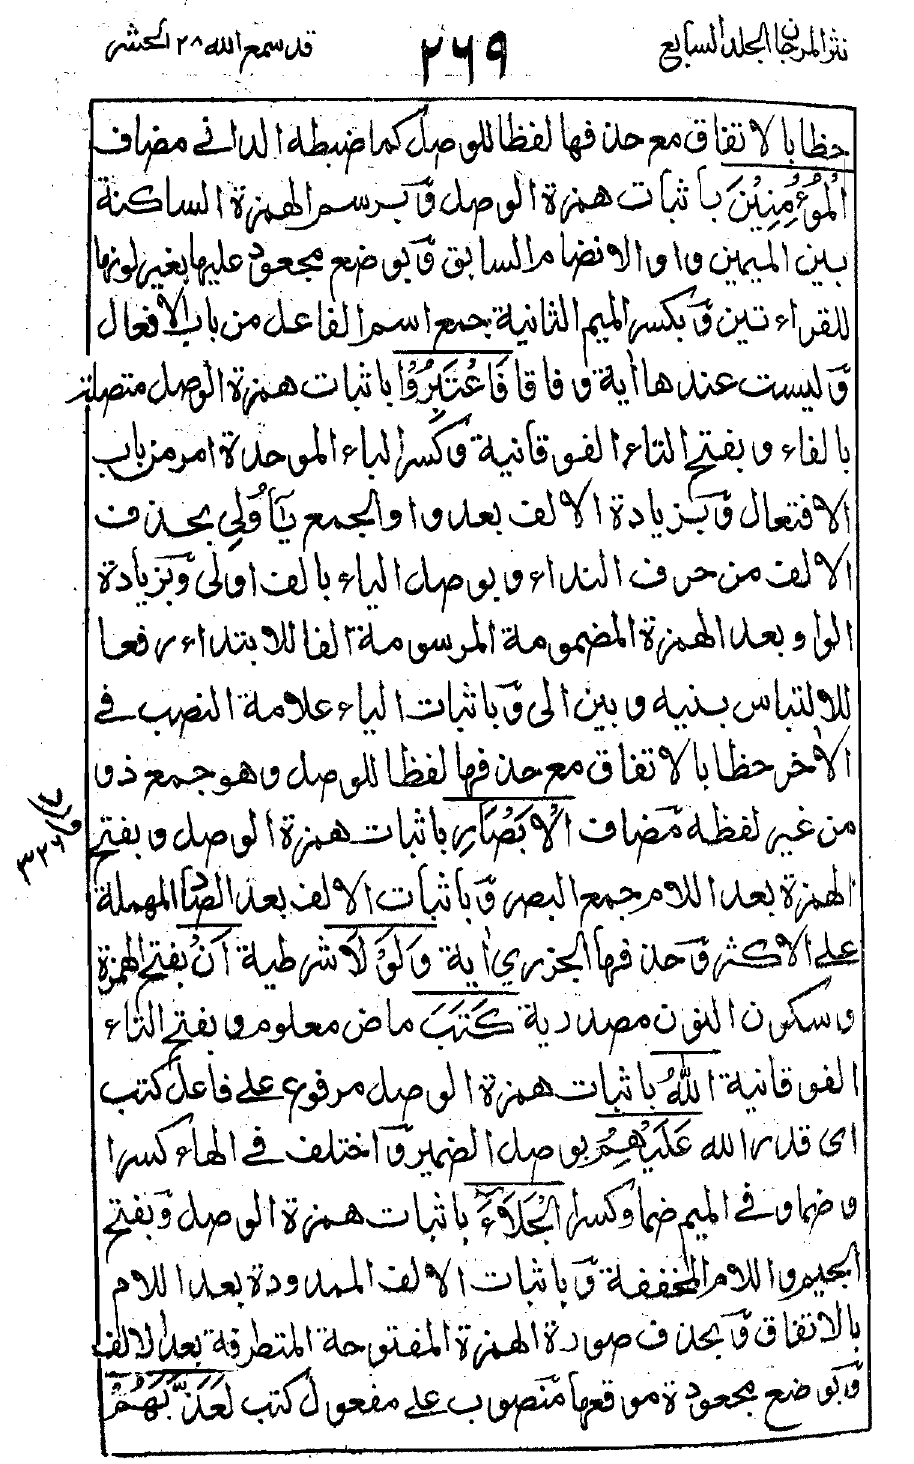 نثر المرجان الجلد السابع
٢٦٩
قد سمع الله ٢٨ الحشر
خطا بالاتفاق مع حذفها لفظا للوصل كما ضبطه الداني مضاف
الْمُؤْمِنِيْنَ باثبات همزة الوصل وبرسم الهمزة الساكنة
بين الميمين واوا لانضمام السابق وبوضع مجعود عليها بغير لونها
للقراءتين وبكسر الميم الثانية جمع اسم الفاعل من باب الافعال
وليست عندها اٰية وفاقا فَاعْتَبِرُوْا باثبات همزة الوصل متصلة
بالفاء وبفتح التاء الفوقانية وكسر الباء الموحدة امر من باب
الافتعال وبزيادة الالف بعد واو الجمع يٰٓاُولِي بحذف
الالف من حرف النداء وبوصل الياء بالف اولى وبزيادة
الواو بعد الهمزة المضمومة المرسومة الفا للابتداء رفعا
للالتباس بينه وبين الى وباثبات الياء علامة النصب في
الاٰخر خطا بالاتفاق مع حذفها لفظا للوصل وهو جمع ذو
من غير لفظه مضاف الْاَبْصَارِ باثبات همزة الوصل وبفتح
الهمزة بعد اللام جمع البصر وباثبات الالف بعد الصاد المهملة
على الاكثر وحذفها الجزري اٰية وَلَوْلَا شرطية اَنْ بفتح الهمزة
وسكون النون مصدرية كَتَبَ ماض معلوم وبفتح التاء
الفوقانية اللهُ باثبات همزة الوصل مرفوع على فاعل كتب
اى قدر الله عَلَيْهِمُ بوصل الضمير واختلف في الهاء كسرا
وضما وفي الميم ضما وكسرا الْجَلَاءَ باثبات همزة الوصل وبفتح
الجيم واللام المخففة وباثبات الالف الممدودة بعد اللام
بالاتفاق وبحذف صورة الهمزة المفتوحة المتطرفة بعد الالف
وبوضع مجعودة موقعها منصوب على مفعول كتب لَعَذَّبَهُمْ